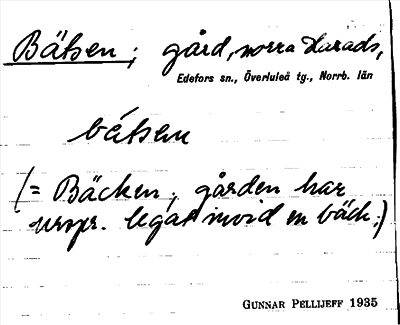 Bätsen; gård, norra Harads,
Edefors sn., Överluleå tg., Norrb. län
bétsen
(= Bäcken; gården har
urspr. legat invid en bäck.)
GUNNAR PELLIJEFF 1935